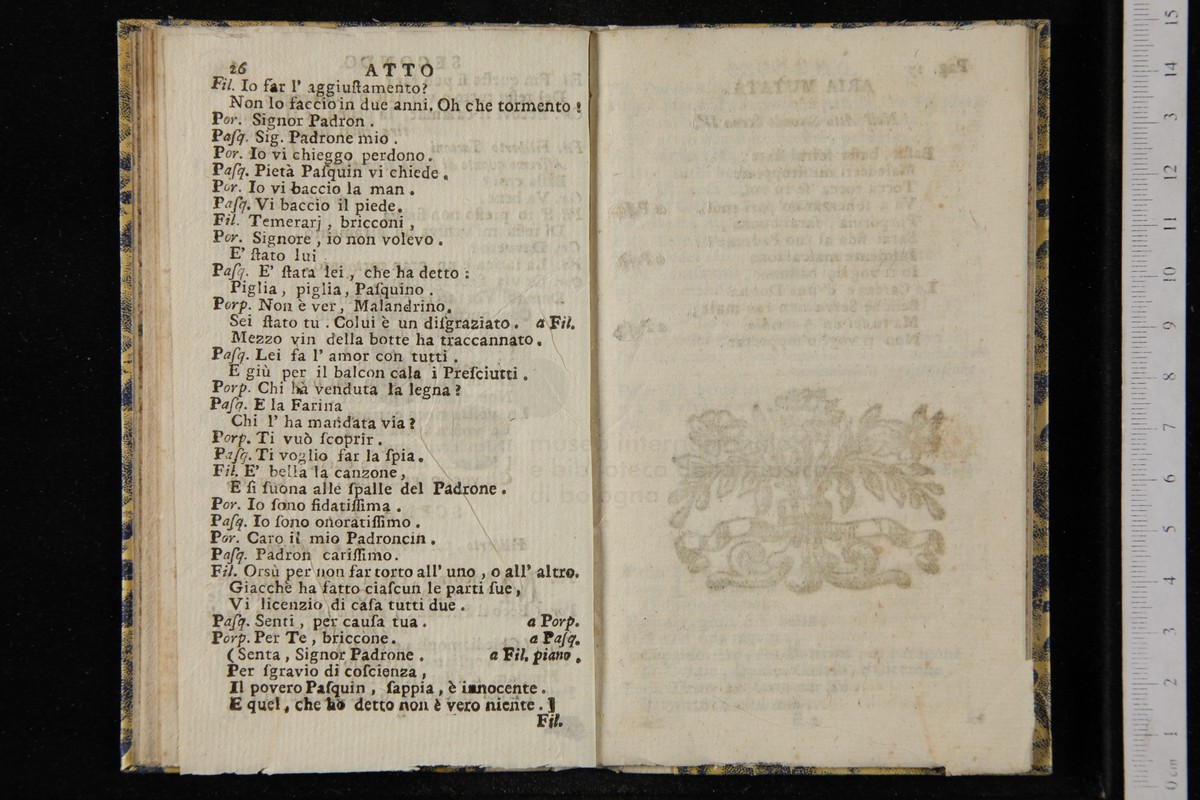 26 ATTO
Fil. Io far l' aggiuſtamento?
Non lo faccio in due anni. Oh che tormento!
Por. Signor Padron.
Paſq. Sig. Padrone mio.
Por. Io vi chieggo perdono.
Paſq. Pietà Paſquin vi chiede.
Por. Io vi baccio la man.
Paſq. Vi baccio il piede.
Fil. Temerarj, bricconi,
Por. Signore, io non volevo.
E' ſtato lui
Paſq. E' ſtata lei, che ha detto:
Piglia, piglia, Paſquino.
Porp. Non è ver, Malandrino.
Sei ſtato tu. Colui è un diſgraziato. a Fil.
Mezzo vin della botte ha traccannato.
Paſq. Lei fa l' amor con tutti.
E giù per il balcon cala i Preſciutti.
Porp. Chi hà venduta la legna?
Paſq. E la Farina
Chi l' ha mandata via?
Porp. Ti vuò ſcoprir.
Paſq. Ti voglio far la ſpia.
Fil. E' bella la canzone,
E ſi ſuona alle ſpalle del Padrone.
Por. Io ſono fidatiſſima.
Paſq. Io ſono onoratiſſimo.
Por. Caro il mio Padroncin.
Paſq. Padron cariſſimo.
Fil. Orsù per non far torto all' uno, o all' altro.
Giacchè ha fatto ciaſcun le parti ſue,
Vi licenzio di caſa tutti due.
Paſq. Senti, per cauſa tua. a Porp.
Porp. Per Te, briccone. a Paſq.
(Senta, Signor Padrone. a Fil. piano.
Per ſgravio di coſcienza,
Il povero Paſquin, ſappia, è innocente.
E quel, che ho detto non è vero niente.]
Fil.
museo inter
e biblioteca
di bologna
0 cm 1 2 3 4 5 6 7 8 9 10 11 12 3 14 15